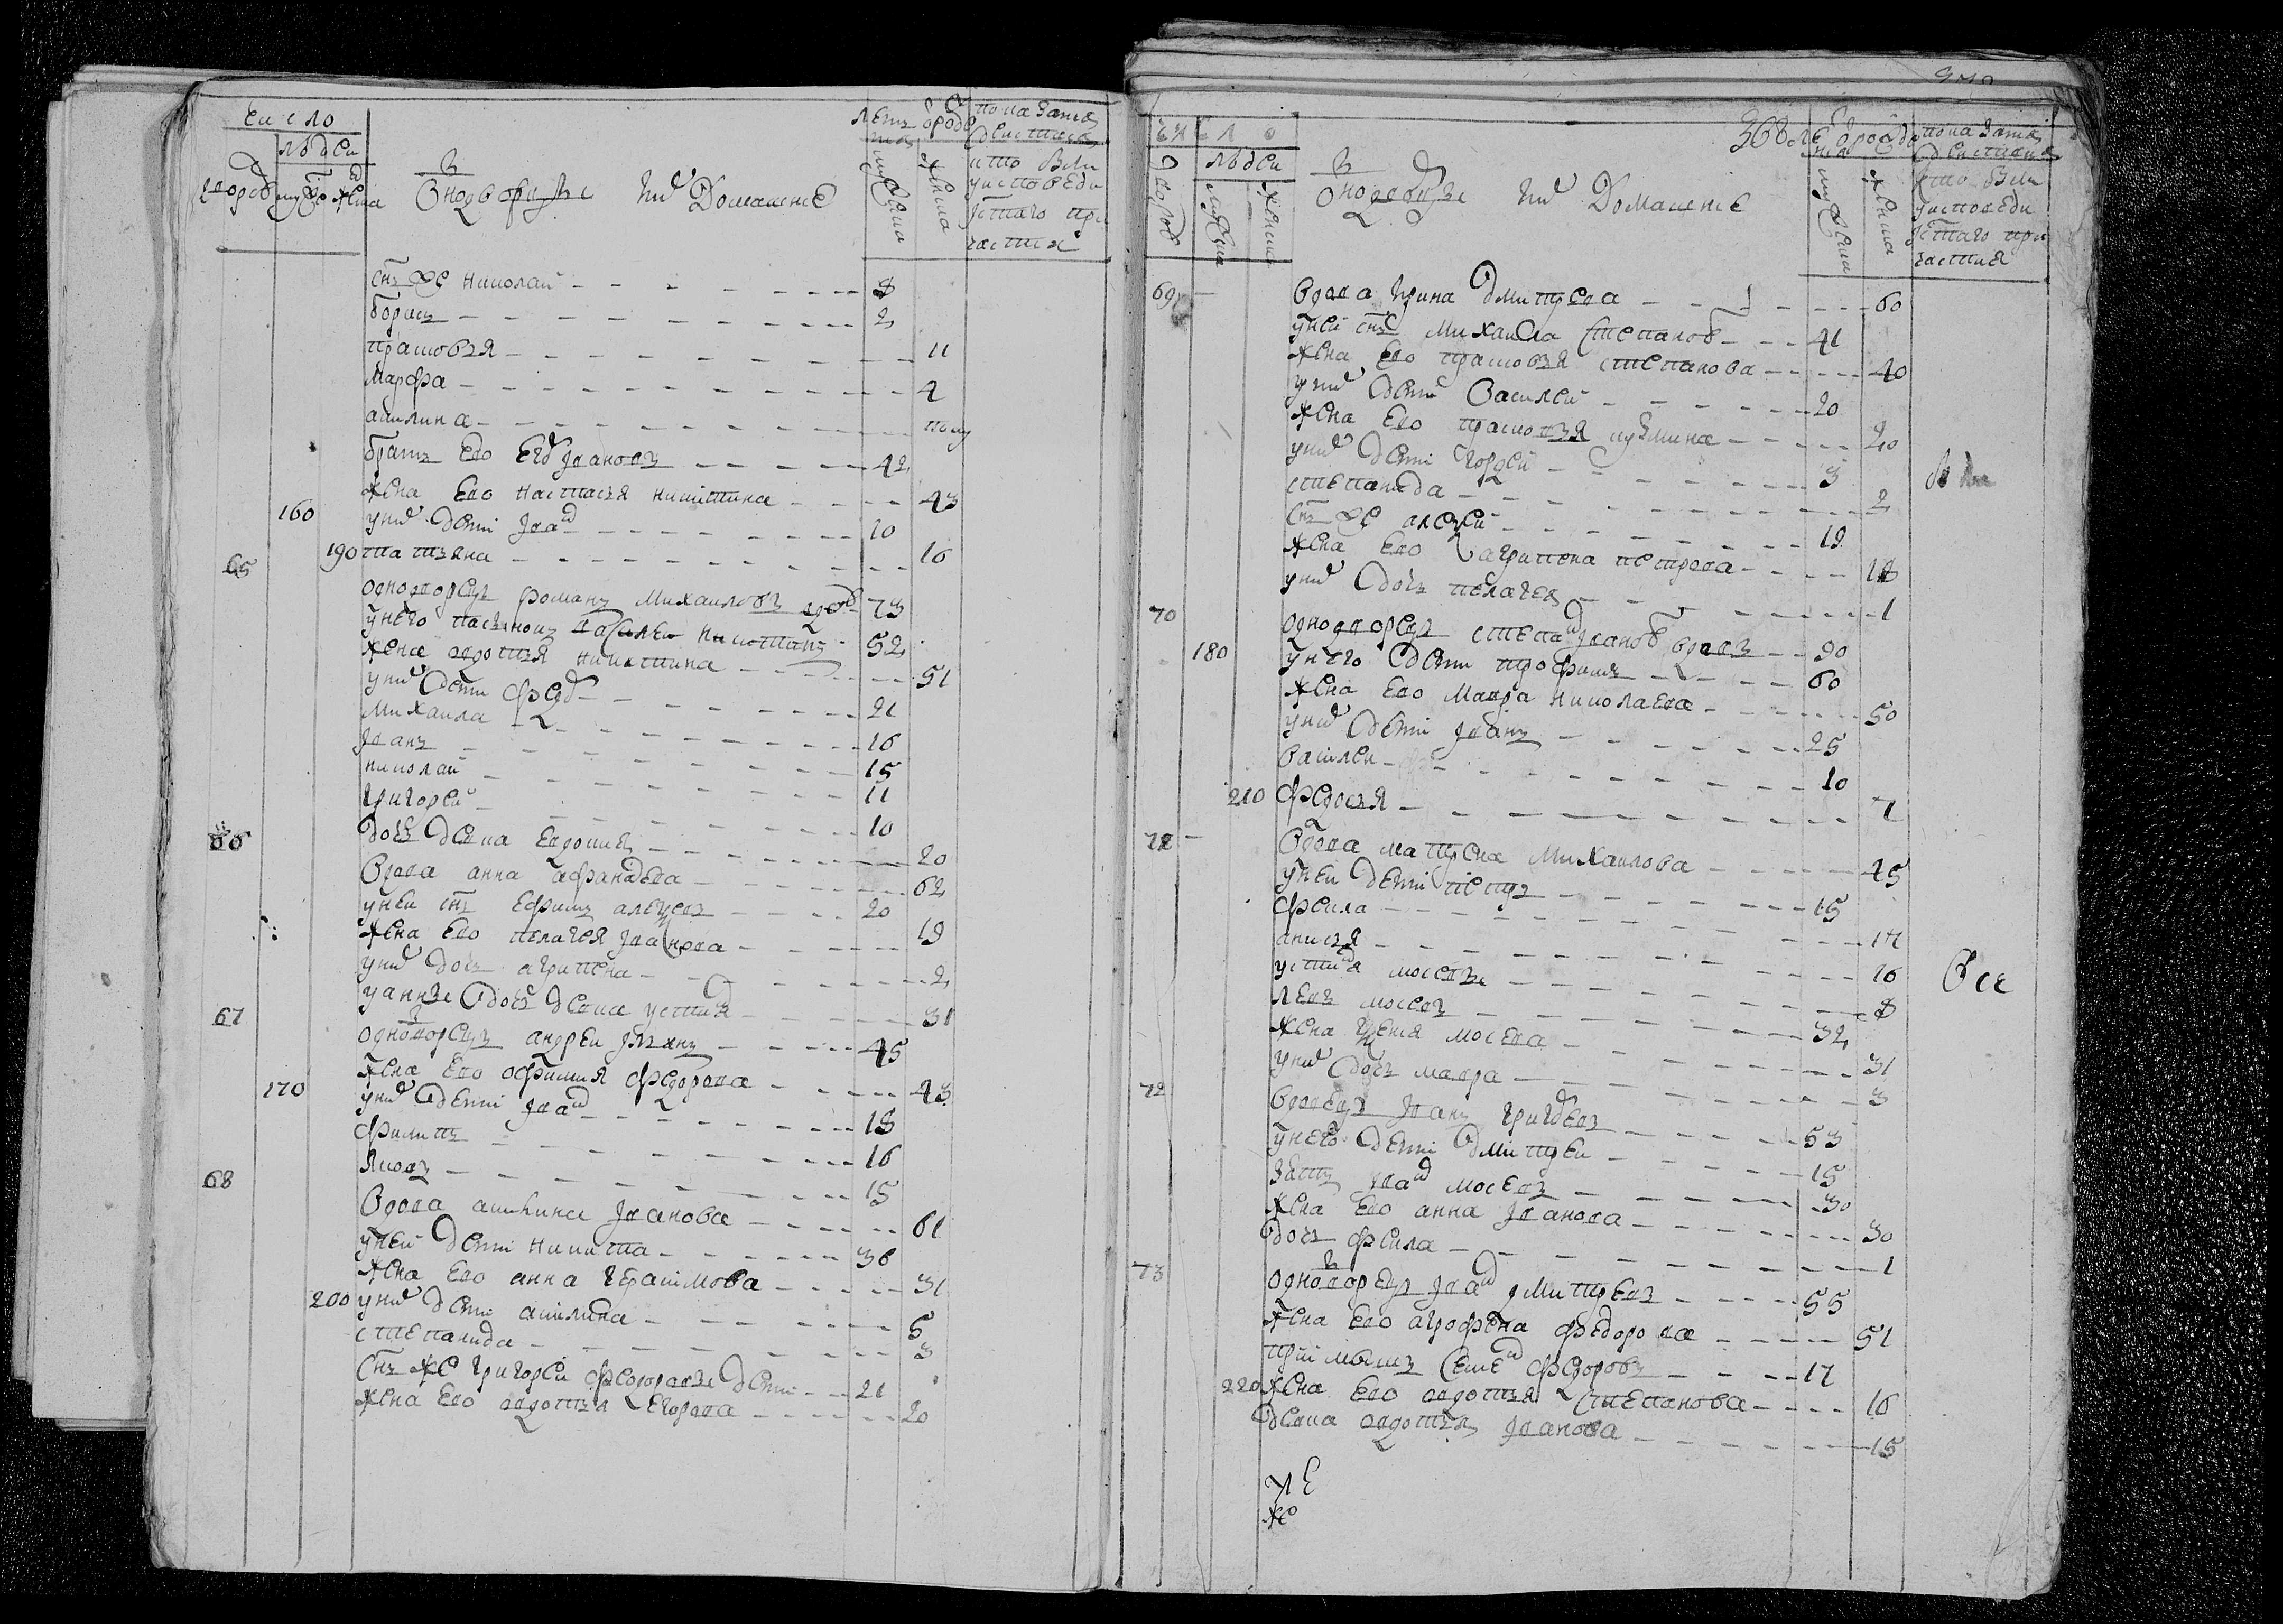 число
людеи
дворов мужеска женска
Однодворцы и их Домашние
лет от роду
мужеска женска
показание
действа
кто были
у исповеди
и стаго при
частия
сн же николаи 8
борис 2
прасковя 11
марфа 4
акилина полу
брат ево его Iвановъ 42
жена ево настася никитина 43
160 у них дети Iван 10
190 татяна 16
65 однодворецъ роман михаиловъ вдов 73
у него пасынок василеи никитин 52
жена авдотя никитина 51
у них дети федо 21
михаила 16
Iван 15
николаи 11
григореи 10
дочь девка евдокия 20
66 вдова анна афанасева 62
у неи сн ефим алексеев 20
жена ево пелагея Iванова 19
у них дочь агрипена 2
у анны дочь девка устиня 31
67 однодворецъ андреи Iван 45
жена ево офимия федорова 43
170 у них дети Iван 18
филип 16
яков 15
68 вдова акилина Iванова 61
у неи дети никита 36
жена ево анна герасимова 31
200 у них дети акилина 5
степанида 3
сн же григореи федоровъ дети 21
жена ево авдотя егорова 20
368
число
людеи
дворов
мужеска
женска
Однодворцы и их Домашние
лет от роду
мужеска женска
показание
действа
кто были
у исповеди
и стаго при
частия
69 вдова ирина дмитрева 60
у неи сн михаила степанов 41
жена ево прасковя степанова 40
у них дети василеи 20
жена ево прасковя кузмина 20
у них дети гордеи 3
степанида 2
сн же алексеи 19
жена ево агрипена петрова 18
у них дочь пелагея 1
70 однодворецъ степан Iванов вдовъ 90
180 у него дети трофим 60
жена ево мавра николаева 50
у них дети Iван 25
василеи 10
210 федося 7
71 вдова матрена михаилова 45
у неи дети петръ 15
фекла 14
анися 10
устиня мосевы 8
левъ мосевъ 32
жена ксеня мосева 31
у них дочь мавра 3
72 вдовецъ Iван григоревъ 53
у него дети дмитреи 15
зять Iван мосевъ 30
жена ево анна Iванова 30
дочь фекла 1
73 однодворецъ Iван дмитревъ 55
жена ево агрофена федорова 51
приимыш семен федоровъ 17
220 жена ево авдотя степанова 16
девка авдотя Iванова 15
Все